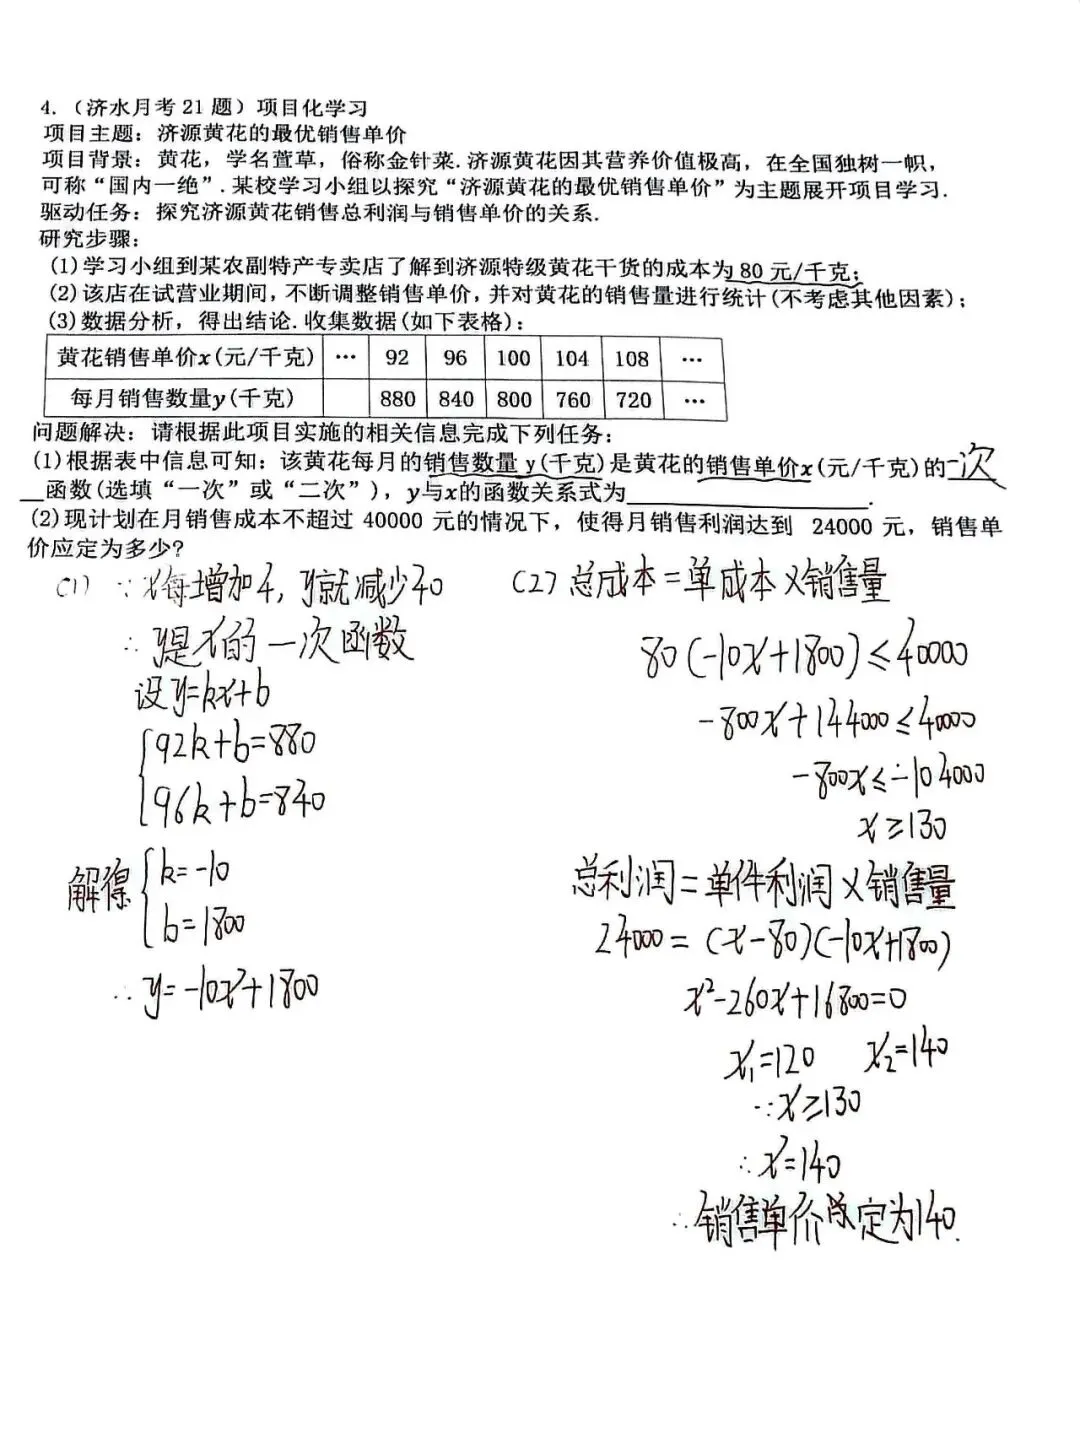 4.（济水月考21题）项目化学习
项目主题：济源黄花的最优销售单价
项目背景：黄花，学名萱草，俗称金针菜.济源黄花因其营养价值极高，在全国独树一帜，
可称“国内一绝”.某校学习小组以探究“济源黄花的最优销售单价”为主题展开项目学习.
驱动任务：探究济源黄花销售总利润与销售单价的关系.
研究步骤：
(1)学习小组到某农副特产专卖店了解到济源特级黄花干货的成本为80元/千克；
(2)该店在试营业期间,不断调整销售单价,并对黄花的销售量进行统计(不考虑其他因素)；
(3)数据分析，得出结论.收集数据(如下表格)：
黄花销售单价x(元/千克) … 92 96 100 104 108 …
每月销售数量y(千克) 880 840 800 760 720 …
问题解决：请根据此项目实施的相关信息完成下列任务：
(1)根据表中信息可知：该黄花每月的销售数量y(千克)是黄花的销售单价x(元/千克)的一次
__函数(选填“一次”或“二次”)，y与x的函数关系式为____________.
(2)现计划在月销售成本不超过40000元的情况下，使得月销售利润达到 24000元，销售单
价应定为多少?
(1) ∵x每增加4,y就减少40
∴y是x的一次函数
设y=kx+b
92k+b=880
96k+b=840
解得 k=-10
b=1800
∴y=-10x+1800
(2)总成本=单成本×销售量
80(-10x+1800)≤40000
-800x+144000≤40000
-800x≤-104000
x≥130
总利润=单件利润×销售量
24000=(x-80)(-10x+1800)
x²-260x+16800=0
x₁=120 x₂=140
∵x≥130
∴x=140
∴销售单价定为140.